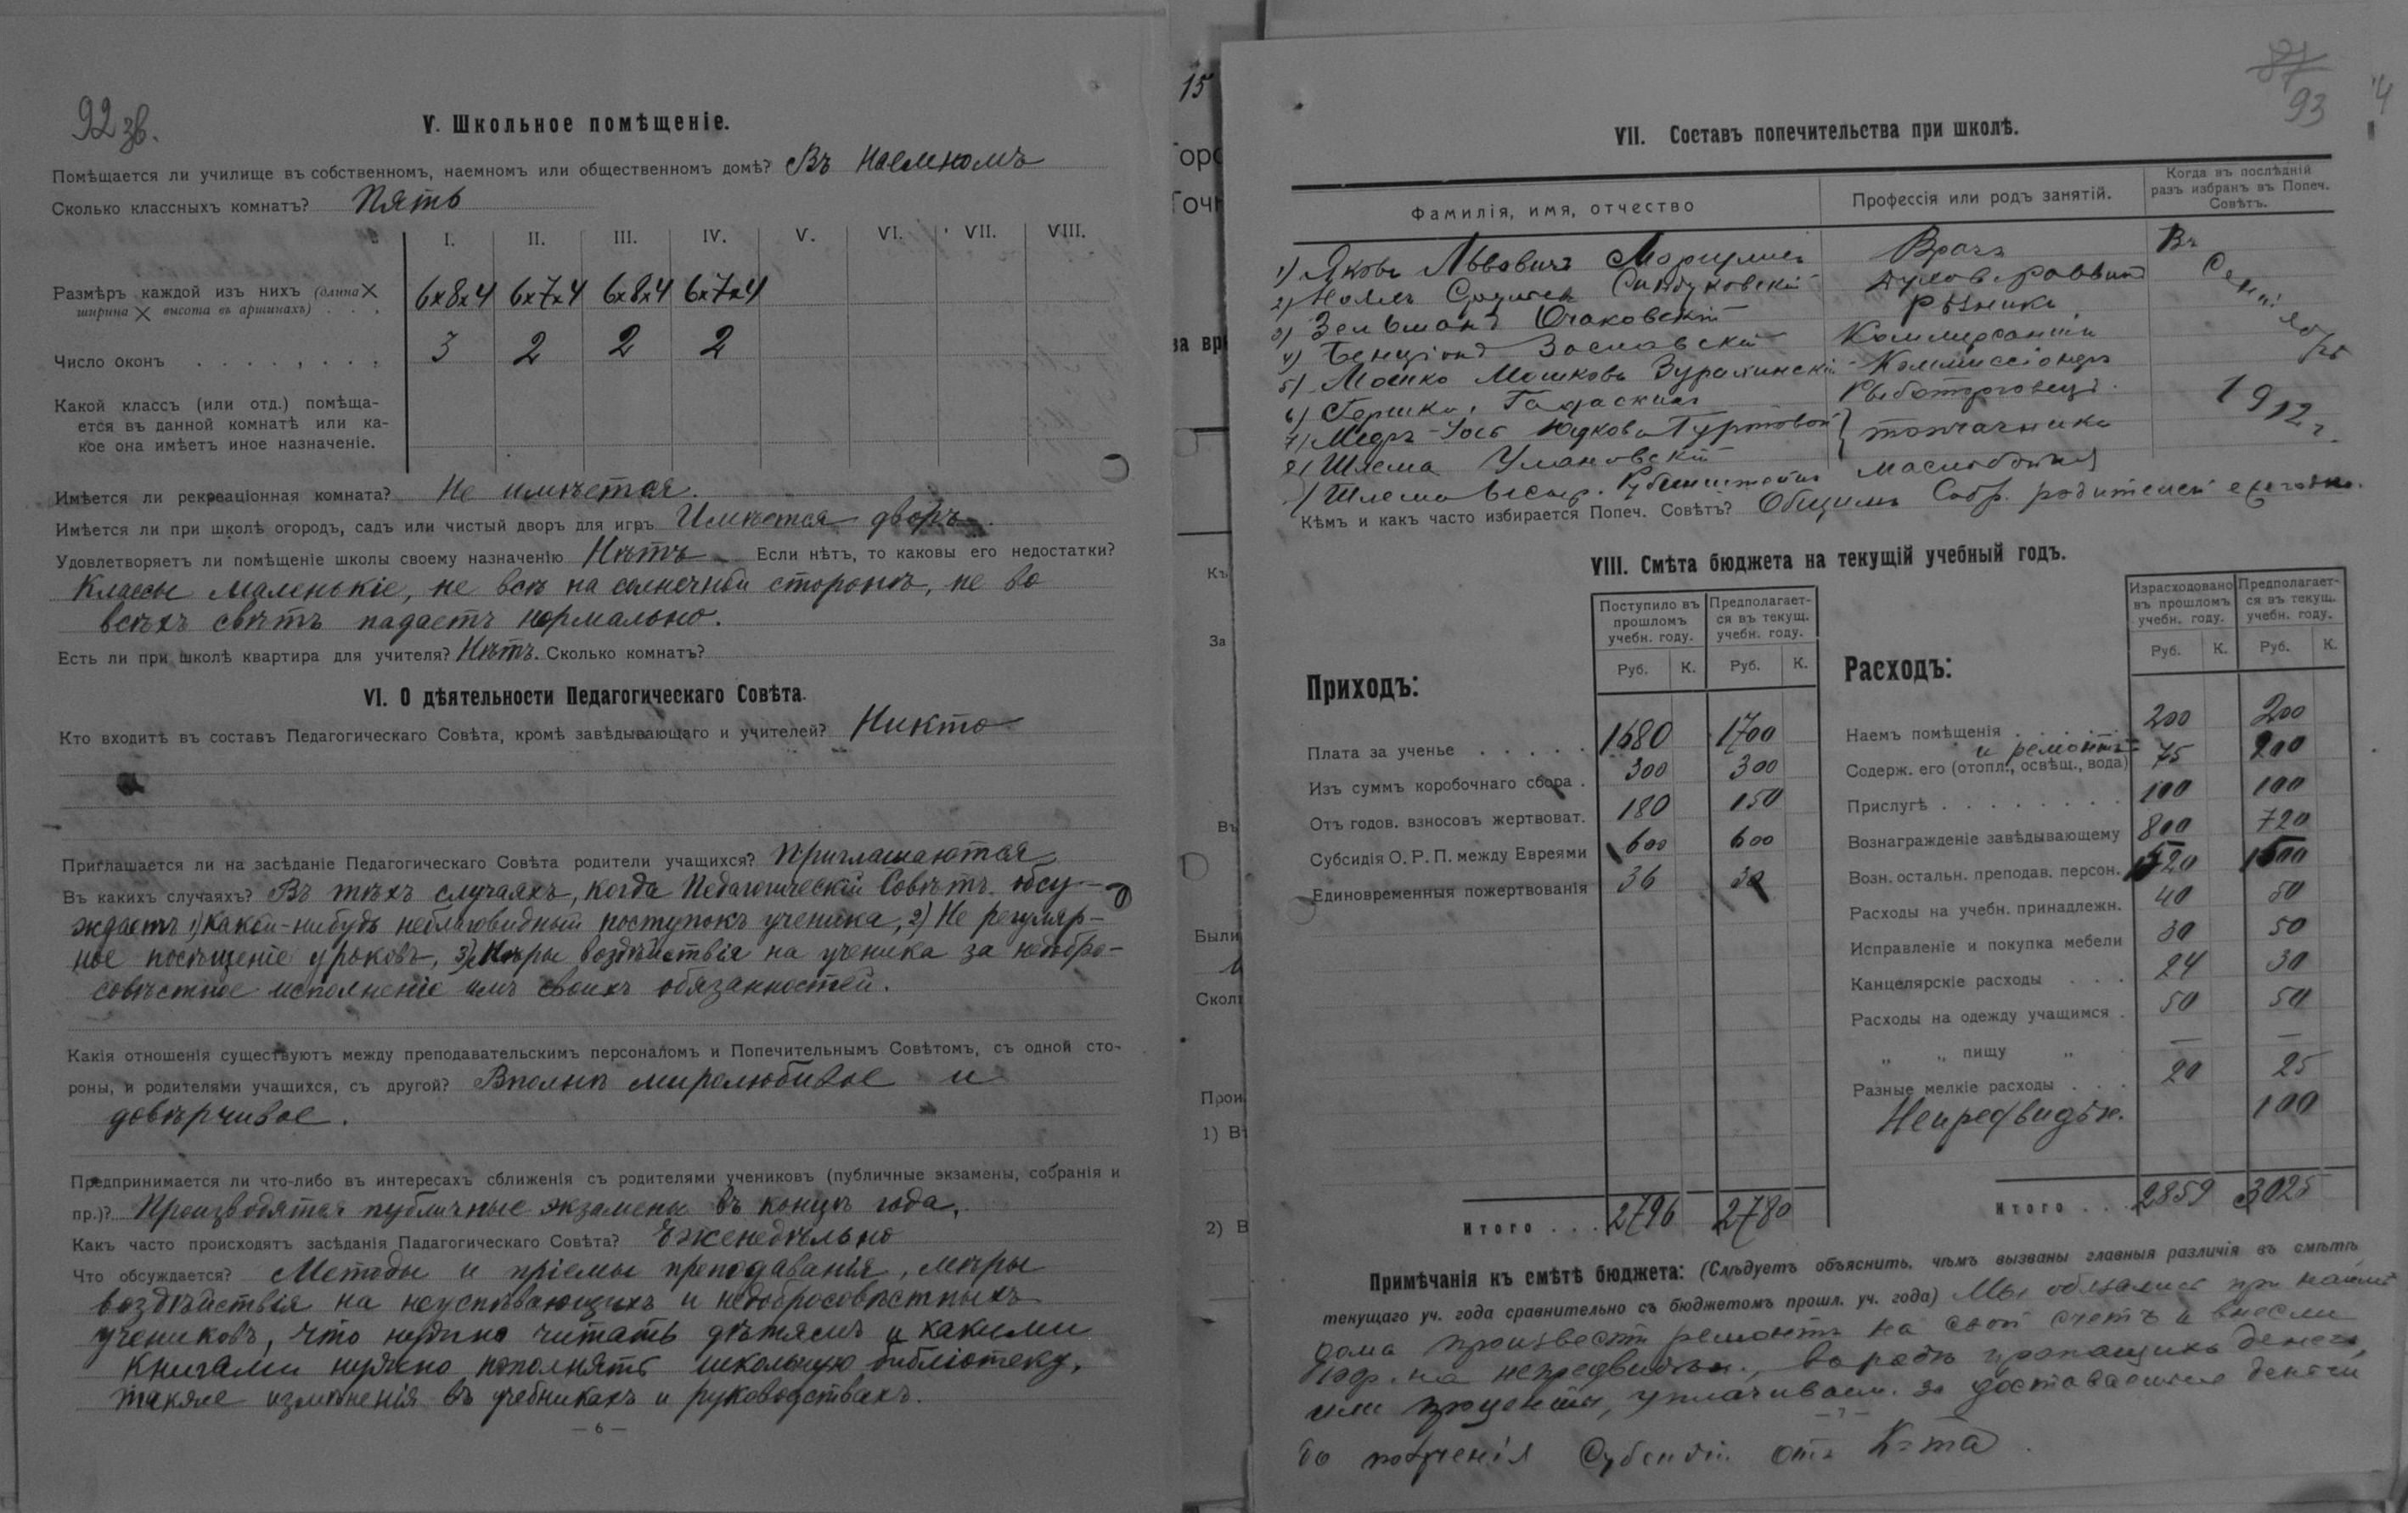 92 зв.
V. Школьное помѣщеніе.
Помѣщается ли училище въ собственномъ, наемномъ или общественномъ домѣ? Въ наемномъ
Сколько классныхъ комнатъ? Пять
I. II. III. IV. V. VI. VII. VIII.
Размѣръ каждой изъ нихъ (длина X
ширина X высота въ аршинахъ) . . . 6x8x4 6x7x4 6x8x4 6x7x4
Число оконъ . . . . . . . 3 2 2 2
Какой классъ (или отд.) помѣща-
ется въ данной комнатѣ или ка-
кое она имѣетъ иное назначеніе.
Имѣется ли рекреаціонная комната? Не имѣется.
Имѣется ли при школѣ огородъ, садъ или чистый дворъ для игръ Имѣется дворъ.
Удовлетворяетъ ли помѣщеніе школы своему назначенію Нѣтъ Если нѣтъ, то каковы его недостатки?
Классы маленькіе, не всѣ на солнечной сторонѣ, не во
всѣхъ свѣтъ падаетъ нормально.
Есть ли при школѣ квартира для учителя? Нѣтъ. Сколько комнатъ?
VI. О дѣятельности Педагогическаго Совѣта.
Кто входитъ въ составъ Педагогическаго Совѣта, кромѣ завѣдывающаго и учителей? Никто
Приглашается ли на засѣданіе Педагогическаго Совѣта родители учащихся? Приглашаются
Въ какихъ случаяхъ? Въ тѣхъ случаяхъ, когда Педагогическій Совѣтъ обсу-
ждаетъ 1) какой-нибудь неблаговидный поступокъ ученика, 2) Не регуляр-
ное посѣщеніе уроковъ, 3) Мѣры воздѣйствія на ученика за недобро-
совѣстное исполненіе имъ своихъ обязанностей.
Какія отношенія существуютъ между преподавательскимъ персоналомъ и Попечительнымъ Совѣтомъ, съ одной сто-
роны, и родителями учащихся, съ другой? Вполнѣ миролюбивое и
довѣрчивое.
Предпринимается ли что-либо въ интересахъ сближенія съ родителями учениковъ (публичные экзамены, собранія и
пр.)? Производятся публичные экзамены въ концѣ года.
Какъ часто происходятъ засѣданія Падагогическаго Совѣта? Еженедѣльно
Что обсуждается? Методы и пріемы преподаванія, мѣры
воздѣйствія на неуспѣвающихъ и недобросовѣстныхъ
учениковъ, что нужно читать дѣтямъ и какими
книгами нужно пополнять школьную библіотеку,
также измѣненія въ учебникахъ и руководствахъ.
— 6 —
15
Къ
За
Были
1)
2) В
87
93
VII. Составъ попечительства при школѣ.
Фамилія, имя, отчество Профессія или родъ занятій. Когда въ послѣдній
разъ избранъ въ Попеч.
Совѣтъ.
1) Яковъ Львовичъ Моргулисъ Врачъ Въ
2) Духов. раввинъ
3) Зельманъ Очаковскій Рѣзникъ
4) Бенціонъ Заславскій Коммерсантъ
5) Мошко Мошковъ Коммиссіонеръ
6) Рыботорговецъ
7) Юдковъ 1912 г.
8) Шлема Умановскій
9) Шлема Рубинштейнъ
Кѣмъ и какъ часто избирается Попеч. Совѣтъ? Общимъ Собр. родителей ежегодно.
VIII. Смѣта бюджета на текущій учебный годъ.
Приходъ: Поступило въ прошломъ учебн. году. Руб. К. Предполагает-ся въ текущ. учебн. году. Руб. К.
Плата за ученье . . . . . 1680 1700
Изъ суммъ коробочнаго сбора . 300 300
Отъ годов. взносовъ жертвоват. 180 150
Субсидія О. Р. П. между Евреями 600 600
Единовременныя пожертвованія 36 30
Итого . . . 2796 2780
Расходъ: Израсходовано въ прошломъ учебн. году. Руб. К. Предполагает-ся въ текущ. учебн. году. Руб. К.
Наемъ помѣщенія . . . . 200 200
и ремонтъ
Содерж. его (отопл., освѣщ., вода) 75 200
Прислугѣ . . . . . . . . 100 100
Вознагражденіе завѣдывающему 800 720
Возн. остальн. преподав. персон. 1520 1500
Расходы на учебн. принадлежн. 40 50
Исправленіе и покупка мебели 30 50
Канцелярскіе расходы . . . 24 30
Расходы на одежду учащимся . 50 50
„ „ пищу „ — —
Разные мелкіе расходы . . . 20 25
Непредвидѣн. 100
Итого . . . 2859 3025
Примѣчанія къ смѣтѣ бюджета: (Слѣдуетъ объяснить, чѣмъ вызваны главныя различія въ смѣтѣ
текущаго уч. года сравнительно съ бюджетомъ прошл. уч. года) Мы обязались при наймѣ
дома произвести ремонтъ на свой счетъ и внесли
100 р. на непредвидѣн., въ родѣ пропащихъ денегъ,
или проценты, уплачиваем. за доставаемыя деньги
— 7 —
до полученія субсидіи отъ К-та.